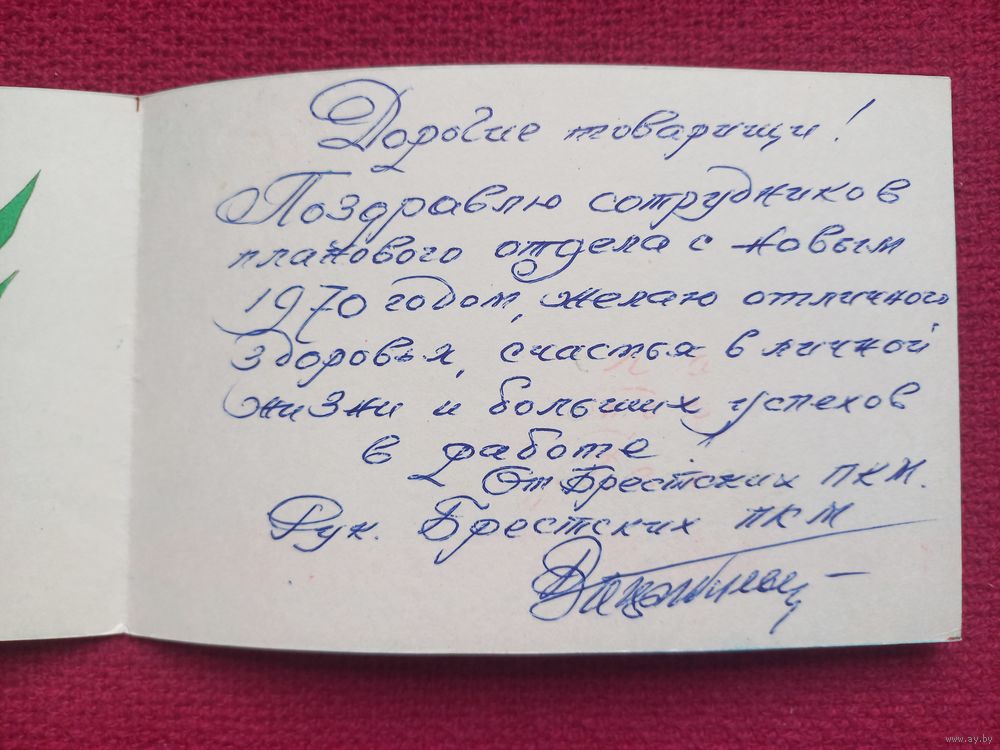 Дорогие товарищи!
Поздравлю сотрудников
планового отдела с новым
1970 годом, желаю отличного
здоровья, счастья в личной
жизни и больших успехов
в работе!
От Брестских ПКМ.
Рук. Брестских ПКМ
www.ay.by